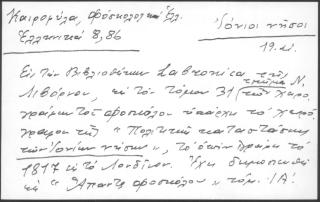 Καιροφύλα, Φώσκολος κτλ.
Ελληνικά 8, 86
Ἰόνιοι νῆσοι
19. αἰ.
Εἰς τὴν Βιβλιοθήκην Labronica
Λιβόρνου, εἰς τὸν τόμον 31 τῶν χειρο
γράφων τοῦ Φωσκόλου ὑπάρχει τὸ χειρό
γραφον τῆς "Πολιτικῆς καταστάσεως
τῶν Ἰονίων νήσων", τὸ ὁποῖον ἔγραψε τὸ
1817 εἰς τὸ Λονδῖνον. Ἔχει δημοσιευθῆ
εἰς "Ἅπαντα Φωσκόλου" τόμ. ΙΑ'.